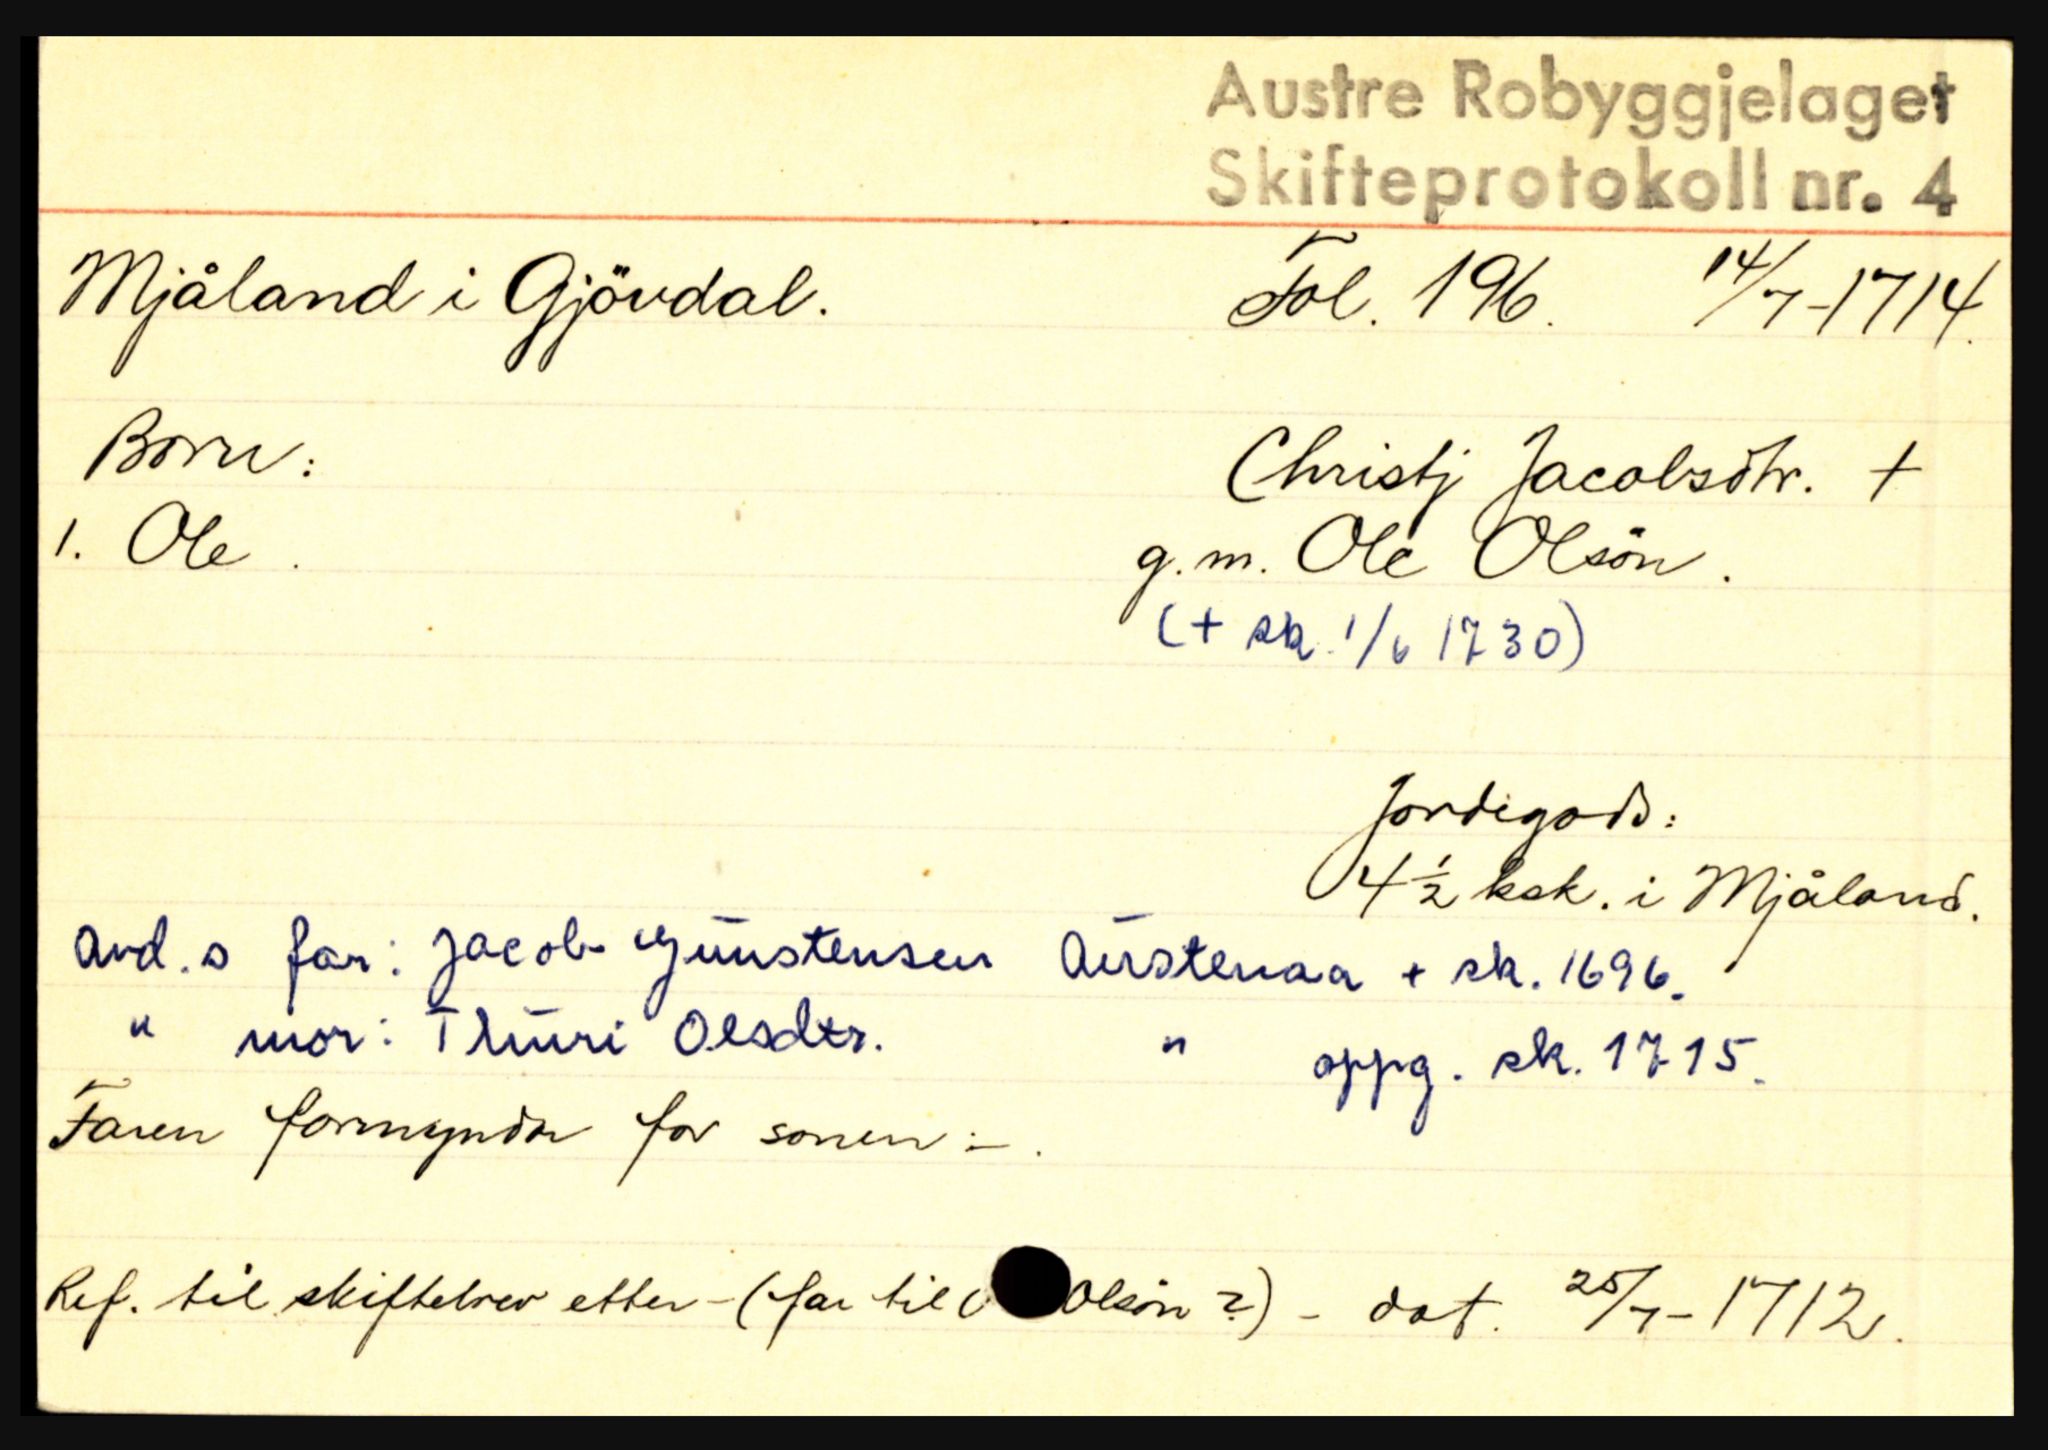 Austre Robyggjelaget
Skifteprotokoll nr. 4
Mjåland i Gjövdal. Fol. 196. 14/7-1714.
Born: Christj Jacobsdtr. +
1. Ole. g.m. Ole Olsön.
(+ sk. 1/6 1730)
Jordigods:
4 1/2 ksk. i Mjåland.
Avd.s far: Jacob Gunstensen Austenaa + sk. 1696.
" mor: Thuri Olsdtr. " oppg. sk. 1715.
Faren formyndar for sonen :-.
Ref. til skiftebrev etter - (far til O Olsön?) - dat. 25/7-1712.